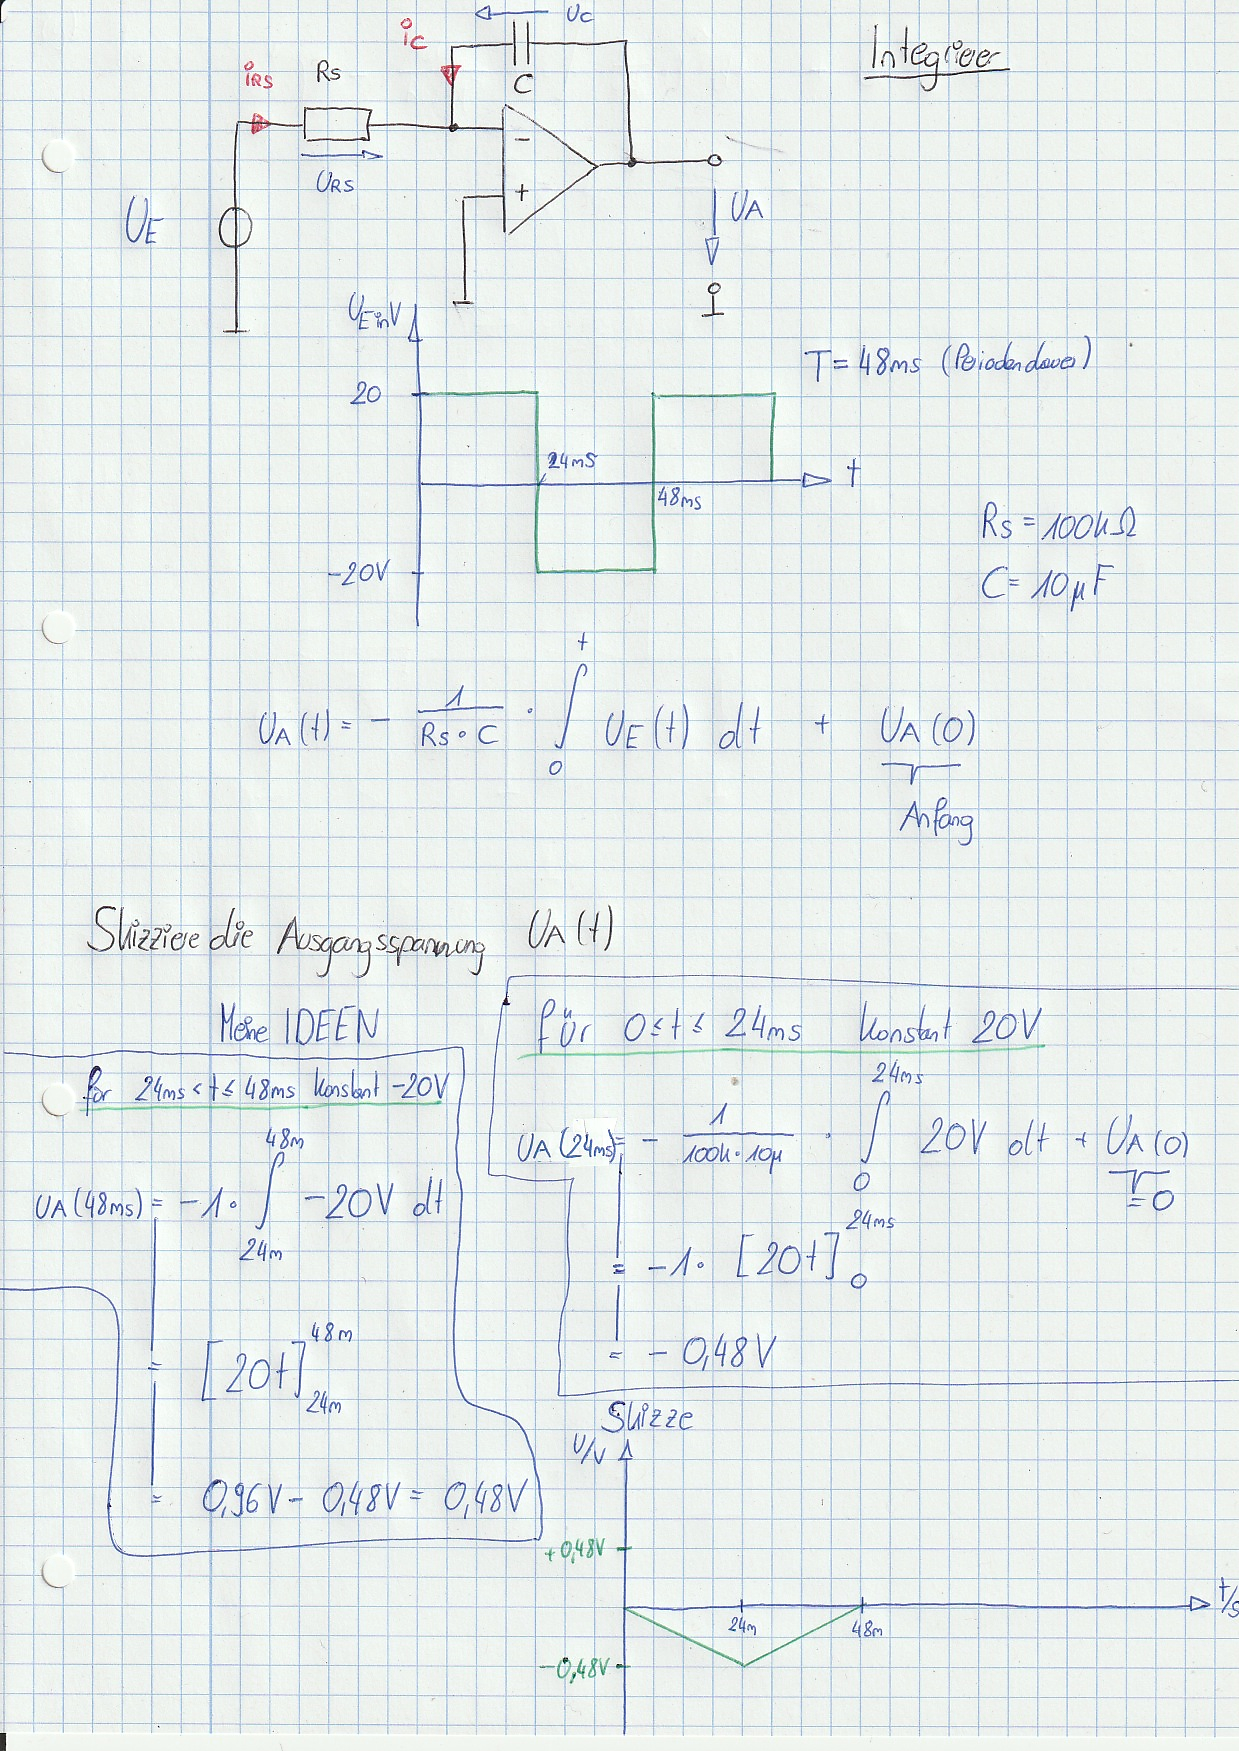 Integrierer
iC
UC
iRS
RS
C
URS
UE
−
+
UA
UE in V
T = 48ms (Periodendauer)
20
24ms
t
48ms
RS = 100kΩ
-20V
C = 10µF
UA(t) = - 1/(RS · C) · ∫₀ᵗ UE(t) dt + UA(0)
Anfang
Skizziere die Ausgangsspannung UA(t)
Meine IDEEN
für 0 ≤ t ≤ 24ms konstant 20V
UA(24ms) = - 1/(100k · 10µ) · ∫₀²⁴ᵐˢ 20V dt + UA(0)
= 0
= -1 · [20t]₀²⁴ᵐˢ
= - 0,48V
für 24ms < t ≤ 48ms konstant -20V
UA(48ms) = -1 · ∫₂₄ₘ⁴⁸ᵐ -20V dt
= [20t]₂₄ₘ⁴⁸ᵐ
= 0,96V - 0,48V = 0,48V
Skizze
U/V
+0,48V
t/s
24m
48m
-0,48V